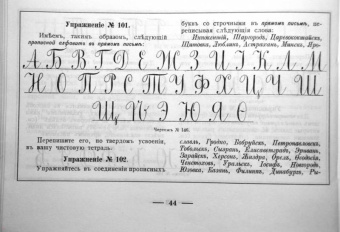 Упражненіе № 101.
Имѣемъ, такимъ образомъ, слѣдующій
прописной алфавитъ въ прямомъ письмѣ:
буквъ со строчными въ прямомъ письмѣ, пе-
реписывая слѣдующія слова:
Нижнеямск, Царевококшайскъ,
Шитовка, Люблинъ, Астрахань, Минскъ, Яро-
А Б В Г Д Е Ж З И І К Л М
Н О П Р С Т У Ф Х Ц Ч Ш
Щ Ѣ Э Ю Я Ѳ
Чертежъ № 146.
Перепишите его, по твердомъ усвоеніи,
въ вашу чистовую тетрадь.
Упражненіе № 102.
Упражняйтесь въ соединеніи прописныхъ
славль, Гродно, Бобруйскъ, Петропавловскъ,
Тобольскъ, Сызрань, Елисаветградъ, Эривань,
Зарайскъ, Херсонъ, Жиздра, Орелъ, Ѳеодосія,
Ченстоховъ, Уральскъ, Іосифъ, Новгородъ,
Юговка, Казань, Филиппъ, Динабургъ, Ры-
— 44 —